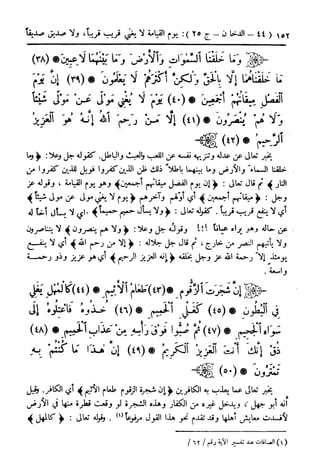 ١٥٢ (٤٤ – الدخان – ج ٢٥): يوم القيامة لا يغني قريب قريباً، ولا صديق صديقاً
وَمَا خَلَقْنَا السَّمَٰوَٰتِ وَالْأَرْضَ وَمَا بَيْنَهُمَا لَٰعِبِينَ ❊ (٣٨)
مَا خَلَقْنَٰهُمَا إِلَّا بِالْحَقِّ وَلَٰكِنَّ أَكْثَرَهُمْ لَا يَعْلَمُونَ ❊ (٣٩) إِنَّ يَوْمَ
الْفَصْلِ مِيقَٰتُهُمْ أَجْمَعِينَ ❊ (٤٠) يَوْمَ لَا يُغْنِي مَوْلًى عَن مَّوْلًى شَيْئًا
وَلَا هُمْ يُنصَرُونَ ❊ (٤١) إِلَّا مَن رَّحِمَ اللَّهُ إِنَّهُ هُوَ الْعَزِيزُ
الرَّحِيمُ ❊ (٤٢)
يخبر تعالى عن عدله وتنزيهه نفسه عن اللعب والعبث والباطل. كقوله جل وعلا: ﴿وما
خلقنا السماء والأرض وما بينهما باطلاً ذلك ظن الذين كفروا فويل للذين كفروا من
النار﴾ ثم قال تعالى: ﴿إن يوم الفصل ميقاتهم أجمعين﴾ وهو يوم القيامة، وقوله عز
وجل: ﴿ميقاتهم أجمعين﴾ أي أولهم وآخرهم ﴿يوم لا يغني مولى عن مولى شيئاً﴾
أي لا ينفع قريب قريباً. كقوله تعالى: ﴿ولا يسأل حميم حميماً﴾. أي لا يسأل أخاً له
عن حاله وهو يراه عياناً !؟! وقوله جل وعلا: ﴿ولا هم ينصرون﴾ لا يتناصرون
ولا يأتيهم النصر من خارج، ثم قال جل جلاله: ﴿إلا من رحم الله﴾ أي لا ينفع
يومئذ إلا رحمة الله عز وجل بخلقه ﴿إنه العزيز الرحيم﴾ أي هو عزيز وذو رحمة
واسعة.
إِنَّ شَجَرَتَ الزَّقُّومِ ❊ (٤٣) طَعَامُ الْأَثِيمِ ❊ (٤٤) كَالْمُهْلِ يَغْلِي
فِي الْبُطُونِ ❊ (٤٥) كَغَلْيِ الْحَمِيمِ ❊ (٤٦) خُذُوهُ فَاعْتِلُوهُ إِلَىٰ
سَوَاءِ الْجَحِيمِ ❊ (٤٧) ثُمَّ صُبُّوا فَوْقَ رَأْسِهِ مِنْ عَذَابِ الْحَمِيمِ ❊ (٤٨)
ذُقْ إِنَّكَ أَنتَ الْعَزِيزُ الْكَرِيمُ ❊ (٤٩) إِنَّ هَٰذَا مَا كُنتُم بِهِ
تَمْتَرُونَ ❊ (٥٠)
يخبر تعالى عما يعذب به الكافرين ﴿إن شجرة الزقوم طعام الأثيم﴾ أي الكافر. وقيل
أنه أبو جهل، ويدخل غيره من الكفار وهذه الشجرة لو وقعت قطرة منها في الأرض
لأفسدت معايش أهلها وقد تقدم نحو هذا القول مرفوعاً (١). وقوله تعالى: ﴿كالمهل﴾
(١) الصافات عند تفسير الآية رقم / ٦٢ /